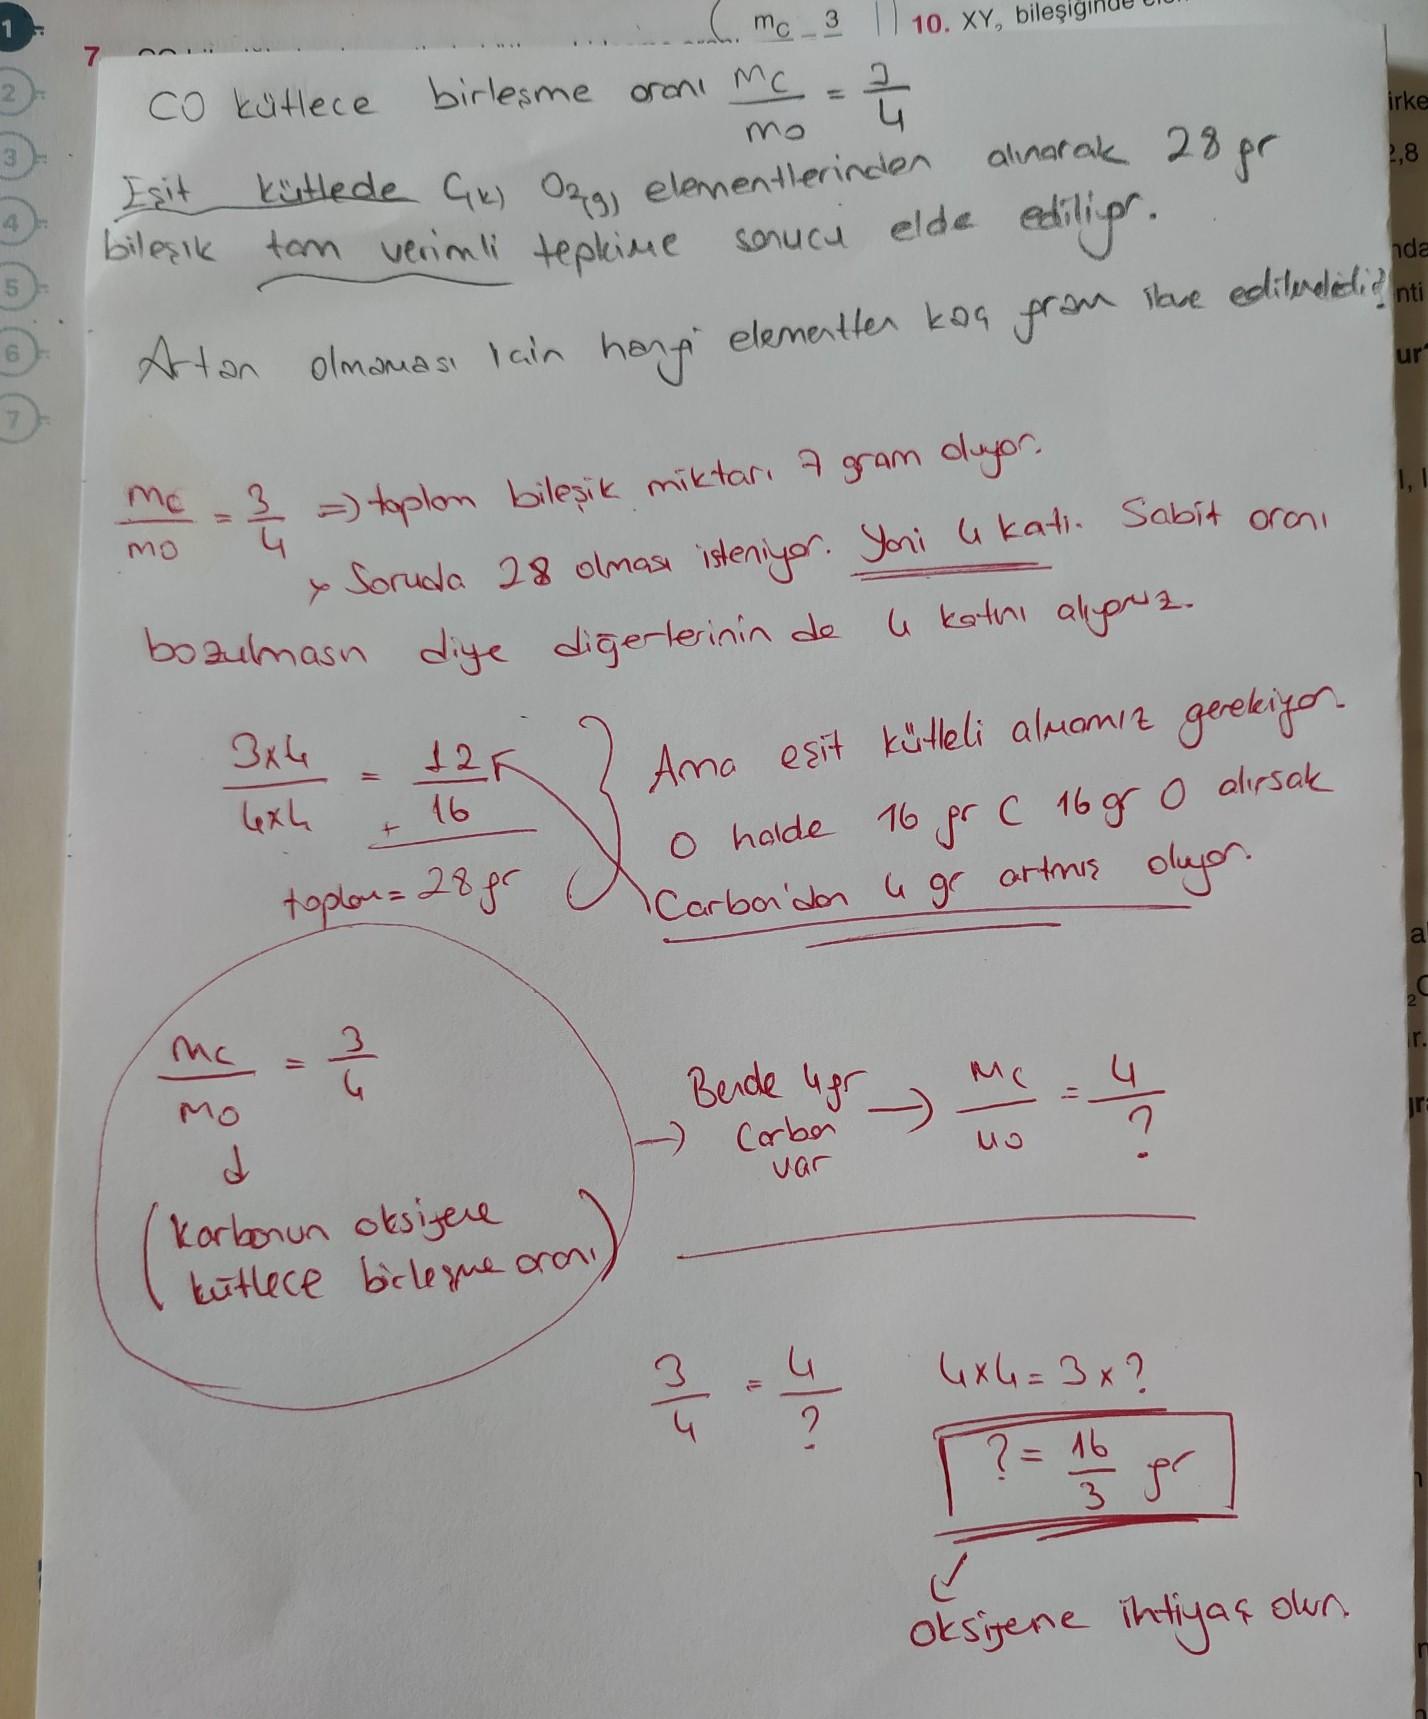 1
2
3
4
5
6
7
7
mc 3
10. XY₂ bileşiğinde
irke
2,8
nda
nti
ur
CO kütlece birleşme oranı mc/mo = 3/4
Eşit kütlede C(k) O2(g) elementlerinden alınarak 28 gr
bileşik tam verimli tepkime sonucu elde ediliyor.
Artan olmaması için hangi elementten kaç gram ilave edilmelidir?
mc/mo = 3/4 => toplam bileşik miktarı 7 gram oluyor.
Soruda 28 olması isteniyor. Yani 4 katı. Sabit oranı
bozulmasın diye diğerlerinin de 4 katını alıyoruz.
3x4/4x4 = 12/16
+
toplam = 28 gr
Ama eşit kütleli almamız gerekiyor.
O halde 16 gr C 16 gr O alırsak
Carbon'dan 4 gr artmış oluyor.
mc/mo = 3/4
(Karbonun oksijene
kütlece birleşme oranı)
→ Bende 4gr
Carbon
var
→ mc/mo = 4/?
3/4 = 4/?
4x4 = 3x?
? = 16/3 gr
oksijene ihtiyaç olur.